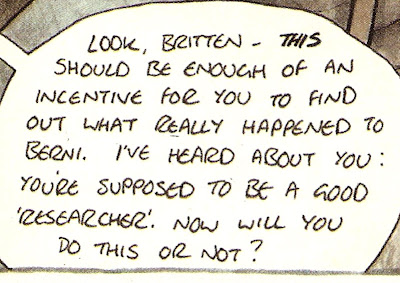 LOOK, BRITTEN - THIS
SHOULD BE ENOUGH OF AN
INCENTIVE FOR YOU TO FIND
OUT WHAT REALLY HAPPENED TO
BERNI. I'VE HEARD ABOUT YOU:
YOU'RE SUPPOSED TO BE A GOOD
'RESEARCHER'. NOW WILL YOU
DO THIS OR NOT?